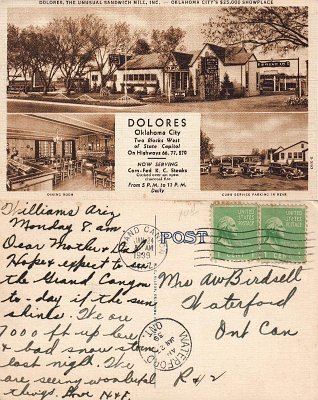 DOLORES, THE UNUSUAL SANDWICH MILL, INC. — OKLAHOMA CITY'S $25,000 SHOWPLACE
DOLORES
Oklahoma City
Two Blocks West
of State Capitol
On Highways 66, 77, 270
NOW SERVING
Corn-Fed K. C. Steaks
Cooked over an open
charcoal fire
From 5 P.M. to 11 P.M.
Daily
DINING ROOM
CURB SERVICE PARKING IN REAR
Williams Ariz
Monday 8 am.
Dear Mother &
Hope & expect to see
the Grand Canyon
to-day if the sun
shines. We are
7000 ft up here
& bad snow storm
last night. We
are seeing wonderful
things. Love H & F.
GRAND CANYON
1939
ARIZ.
POST
Mrs AW Birdsell
Waterford
Ont Can
R # 2
WATERFORD
ONT